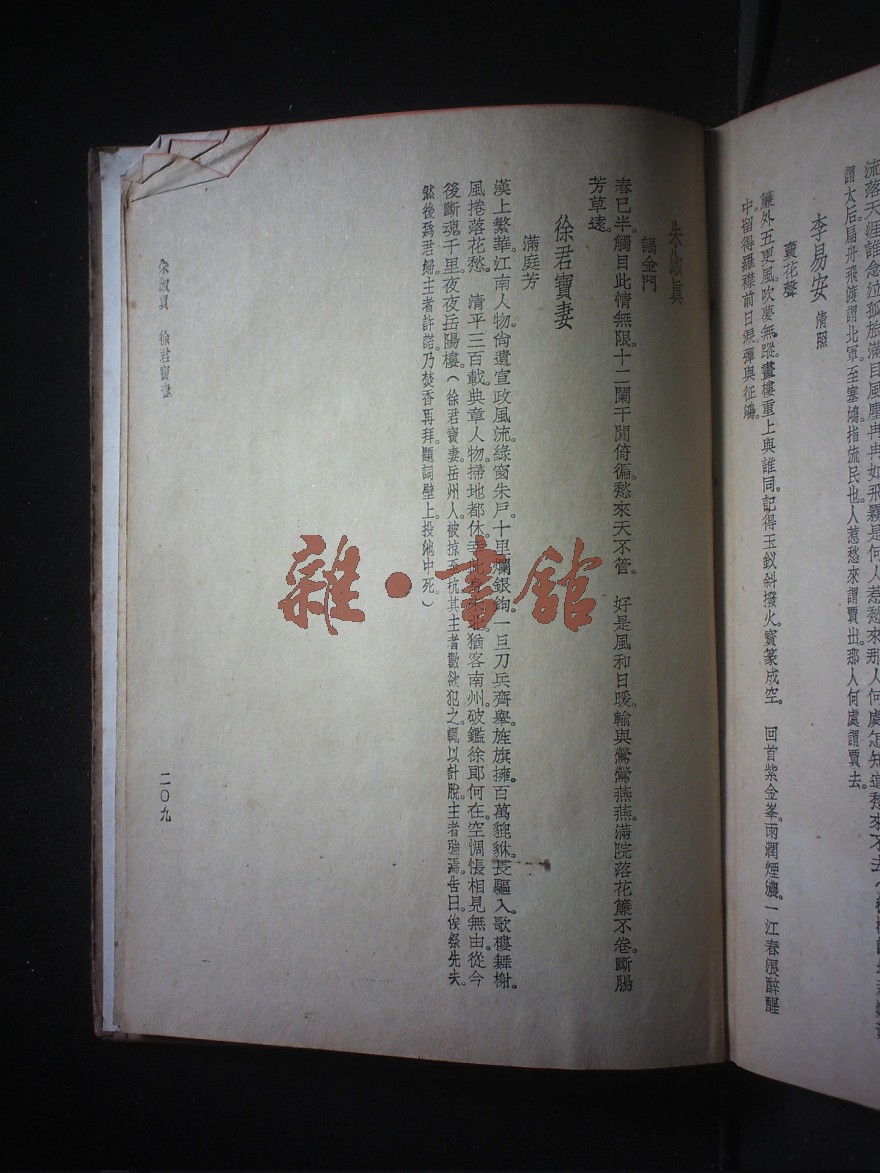 流落天涯誰念泣孤旅滿目風塵冉冉如飛霧是何人惹愁來那人何處怎知道愁來不去
謂太后扁舟飛渡謂北軍至塞鴻指流民也人惹愁來謂賈出那人何處謂賈去。
李易安 清照
賣花聲
簾外五更風。吹夢無蹤。畫樓重上與誰同。記得玉釵斜撥火。寶篆成空。　回首紫金峯。雨潤煙濃。一江春浪醉醒
中。留得羅襟前日淚。彈與征鴻。
朱淑眞
謁金門
春已半。觸目此情無限。十二闌干閒倚徧。愁來天不管。　好是風和日暖。輸與鶯鶯燕燕。滿院落花簾不卷。斷腸
芳草遠。
徐君寶妻
滿庭芳
漢上繁華。江南人物。尙遺宣政風流。綠窗朱戶。十里爛銀鉤。一旦刀兵齊舉。旌旗擁。百萬貔貅。長驅入。歌樓舞榭。
風捲落花愁。　清平三百載。典章人物。掃地都休。猶客南州。破鑑徐郎何在。空惆悵。相見無由。從今
後。斷魂千里。夜夜岳陽樓。（徐君寶妻岳州人。被掠至杭。其主者數欲犯之。輒以計脫。主者強焉。告曰。俟祭先夫。
然後爲君婦。主者許諾。乃焚香再拜。題詞壁上。投池中死。）
朱淑眞　徐君寶妻
二〇九
雜·書館